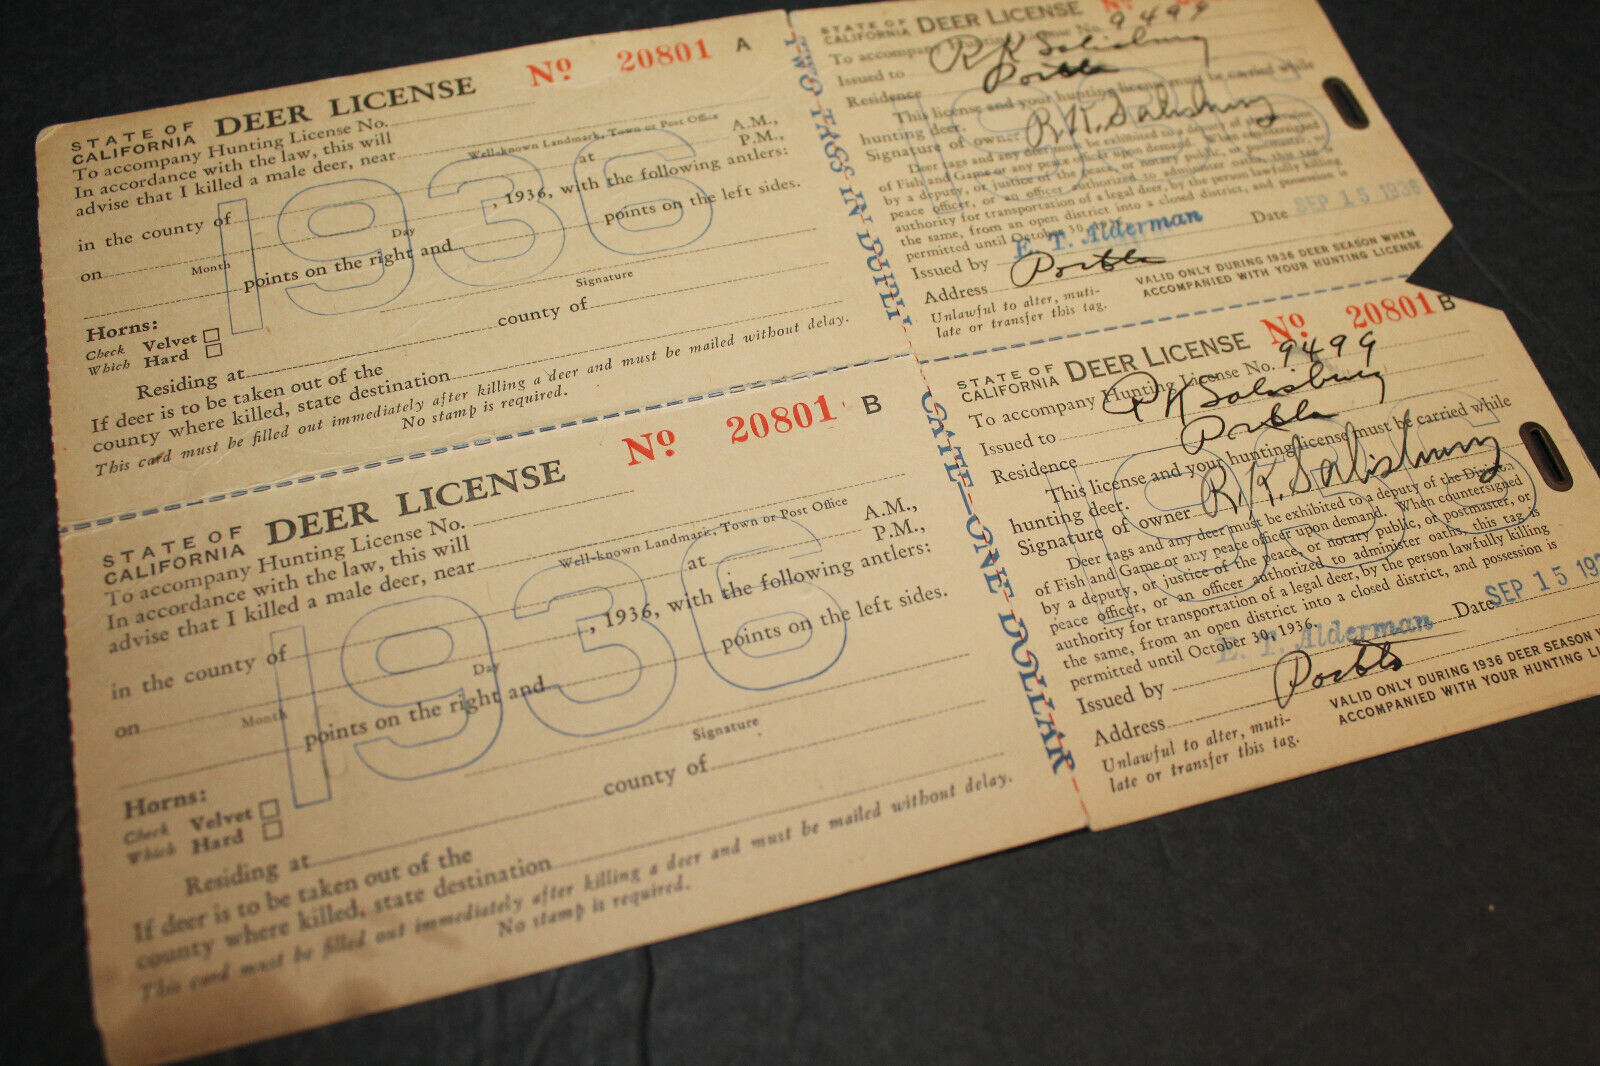 STATE OF CALIFORNIA DEER LICENSE Nº 20801 A
To accompany Hunting License No.
In accordance with the law, this will
advise that I killed a male deer, near
Well-known Landmark, Town or Post Office
in the county of at A.M., P.M.,
on , 1936, with the following antlers:
Month Day
points on the right and points on the left sides.
Signature
Horns:
Check Which
Velvet
Hard
Residing at county of
If deer is to be taken out of the
county where killed, state destination
This card must be filled out immediately after killing a deer and must be mailed without delay.
No stamp is required.
1936
TWO TAGS IN DUPLICATE—ONE DOLLAR
STATE OF CALIFORNIA DEER LICENSE Nº
To accompany Hunting License No. 9499
Issued to R K Salisbury
Residence
This license and your hunting license must be carried while
hunting deer.
Signature of owner R. K. Salisbury
Deer tags and any deer must be exhibited to a deputy of the Division
of Fish and Game or any peace officer upon demand. When countersigned
by a deputy, or justice of the peace, or notary public, or postmaster, or
peace officer, or an officer authorized to administer oaths, this tag is
authority for transportation of a legal deer, by the person lawfully killing
the same, from an open district into a closed district, and possession is
permitted until October 30,
Issued by E. T. Alderman Date SEP 15 1936
Address
Unlawful to alter, muti-
late or transfer this tag.
VALID ONLY DURING 1936 DEER SEASON WHEN
ACCOMPANIED WITH YOUR HUNTING LICENSE
1936
STATE OF CALIFORNIA DEER LICENSE Nº 20801 B
To accompany Hunting License No.
In accordance with the law, this will
advise that I killed a male deer, near
Well-known Landmark, Town or Post Office
in the county of at A.M., P.M.,
on , 1936, with the following antlers:
Month Day
points on the right and points on the left sides.
Signature
Horns:
Check Which
Velvet
Hard
Residing at county of
If deer is to be taken out of the
county where killed, state destination
This card must be filled out immediately after killing a deer and must be mailed without delay.
No stamp is required.
1936
STATE OF CALIFORNIA DEER LICENSE Nº 20801 B
To accompany Hunting License No. 9499
Issued to R K Salisbury
Residence
This license and your hunting license must be carried while
hunting deer.
Signature of owner R. K. Salisbury
Deer tags and any deer must be exhibited to a deputy of the Division
of Fish and Game or any peace officer upon demand. When countersigned
by a deputy, or justice of the peace, or notary public, or postmaster, or
peace officer, or an officer authorized to administer oaths, this tag is
authority for transportation of a legal deer, by the person lawfully killing
the same, from an open district into a closed district, and possession is
permitted until October 30, 1936.
Issued by E. T. Alderman Date SEP 15 193
Address
Unlawful to alter, muti-
late or transfer this tag.
VALID ONLY DURING 1936 DEER SEASON
ACCOMPANIED WITH YOUR HUNTING
1936